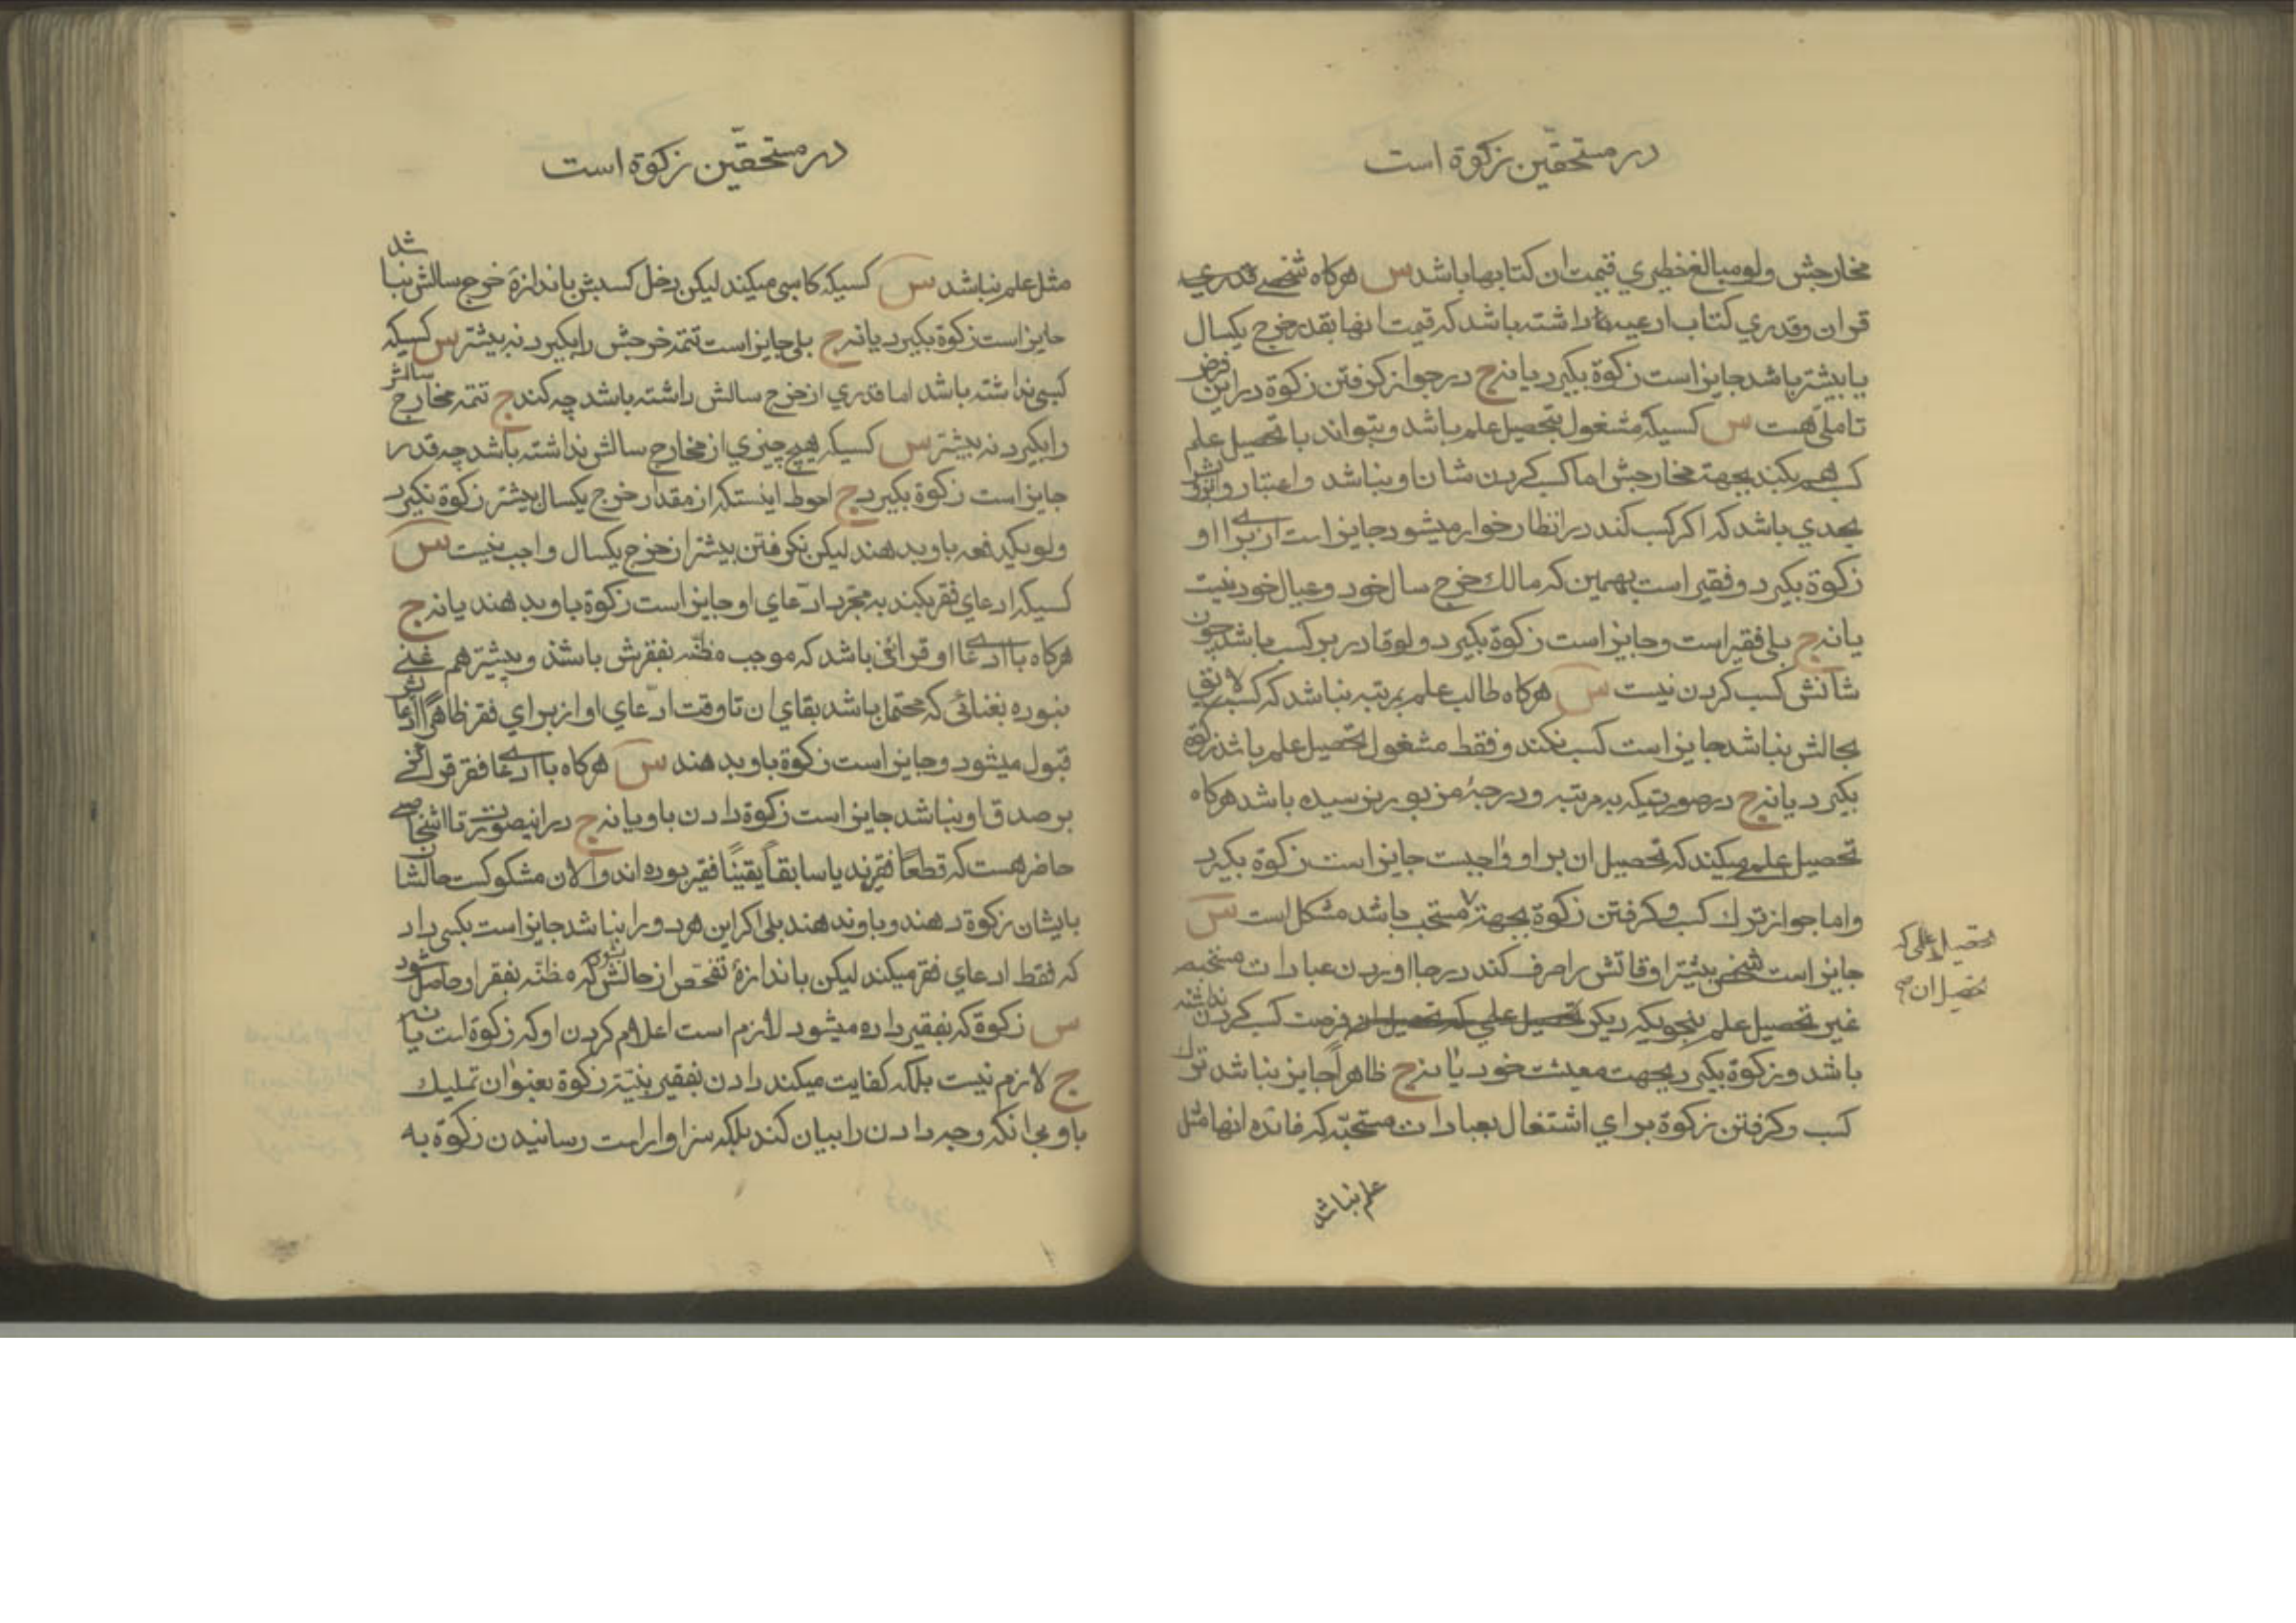 در مستحقّین زکوة است
مخارجش ولو مبالغ خطیری قیمت ان کتابها باشد س هرکاه شخصے قدری
قران و قدری کتاب ادعیه داشته باشد که قیمت انها بقدر خرج یکسال
یا بیشتر باشد جایز است زکوة بکیرد یا نه ج در جواز کرفتن زکوة در این فرض
تاملی هست س کسیکه مشغول بتحصیل علم باشد و بتواند با تحصیل علم
کسب هم بکند بجهة مخارجش اما کسب کردن شان او نباشد و اعتبار و
بحدی باشد که اکر کسب کند در انظار خوار میشود جایز است از براے او
زکوة بکیرد و فقیر است بهمین که مالك خرج سال خود و عیال خود نیست
یا نه ج بلی فقیر است و جایز است زکوة بکیرد و لو قادر بر کسب باشد چون
شانش کسب کردن نیست س هرکاه طالب علم بمرتبه نباشد که کسب لایق
بحالش نباشد جایز است کسب نکند و فقط مشغول تحصیل علم باشد زکوة
بکیرد یا نه ج در صورتیکه به مرتبه و درجۀ مزبور نرسیده باشد هرکاه
تحصیل علمے میکند که تحصیل ان بر او واجبست جایز است زکوة بکیرد
و اما جواز ترك کسب و کرفتن زکوة بجهة مستحب باشد مشکل است س
تحصیل علمی که
تحصیل ان
جایز است شخص بیشتر اوقاتش را صرف کند در بجا اوردن عبادات مستحبه
غیر تحصیل علم بنحویکه دیکر تحصیل علمی که تحصیل ان فرصت کسب کردن نداشته
باشد و زکوة بکیرد بجهت معیشت خود یا نه ج ظاهراً جایز نباشد ترك
کسب و کرفتن زکوة برای اشتغال بعبادات مستحبّه که فائده انها مثل
علم نباشد
در مستحقّین زکوة است
مثل علم نباشد س کسیکه کاسبی میکند لیکن دخل کسبش باندازۀ خرج سالش نباشد
جایز است زکوة بکیرد یا نه ج بلی جایز است تتمه خرجش را بکیرد نه بیشتر س کسیکه
کسبی نداشته باشد اما قدری از خرج سالش داشته باشد چه کند ج تتمه مخارج سالش
را بکیرد نه بیشتر س کسیکه هیچ چیزی از مخارج سالش نداشته باشد چه قدر
جایز است زکوة بکیرد ج احوط اینستکه از مقدار خرج یکسال بیشتر زکوة نکیرد
ولو یکدفعه باو بدهند لیکن نکرفتن بیشتر از خرج یکسال واجب نیست س
کسیکه ادعای فقر بکند به مجرد ادّعای او جایز است زکوة باو بدهند یا نه ج
هرکاه با ادعاے او قرائنی باشد که موجب مظنّه بفقرش باشد و بیشتر هم غنے
نبوده بغنائی که محتمل باشد بقای ان تا وقت ادّعای او از برای فقر ظاهراً ادعاش
قبول میشود و جایز است زکوة باو بدهند س هرکاه با ادعاے فقر قرائنے
بر صدق او نباشد جایز است زکوة دادن باو یا نه ج در اینصورت تا اشخاصے
حاضر هست که قطعاً فقیرند یا سابقاً یقیناً فقیر بوده اند و الان مشکوکست حالشان
بایشان زکوة دهند و باو ندهند بلی اکر این هر دو را نباشد جایز است بکسی داد
که فقط ادعای فقر میکند لیکن باندازۀ تفحّص از حالش شود که مظنّه بفقر او حاصل شود
س زکوة که بفقیر داده میشود لازم است اعلام کردن او که زکوة است یا نه
ج لازم نیست بلکه کفایت میکند دادن بفقیر بنیّت زکوة بعنوان تملیك
باو بی انکه وجه دادن را بیان کند بلکه سزاوار است رسانیدن زکوة به